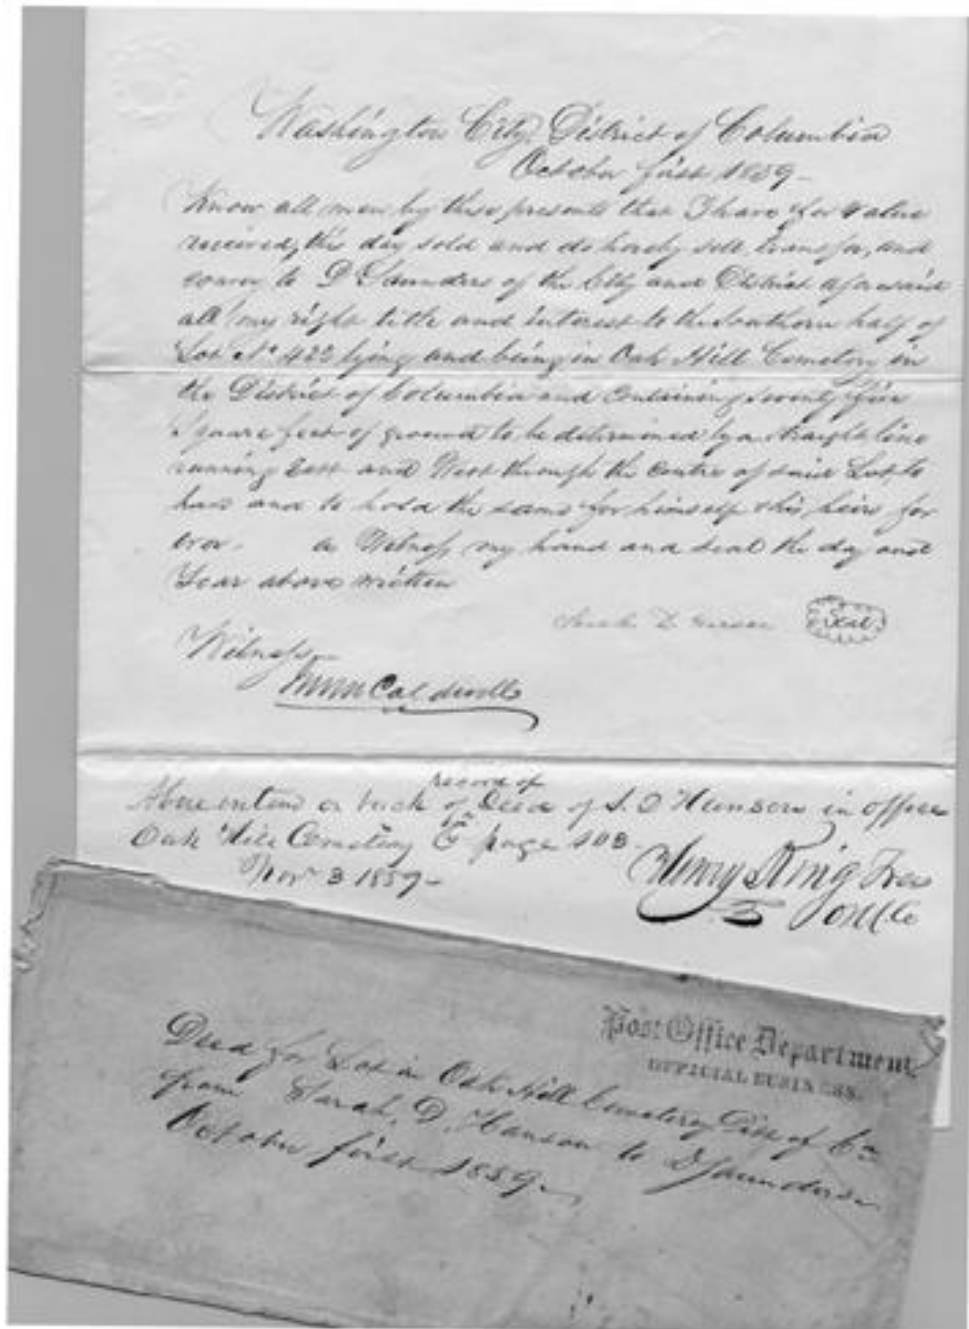 Washington City, District of Columbia
October first 1859-
Know all men by these presents that I have for value
received, this day sold and do hereby sell, transfer, and
convey to D Saunders of the City and District aforesaid
all my right title and interest to the Southern half of
Lot No 422 lying and being in Oak Hill Cemetery in
the District of Columbia and Containing Seventy five
Square feet of ground to be determined by a straight line
running East and West through the Centre of said Lot, to
have and to hold the same for himself & his heirs for
ever. Witness my hand and seal the day and
Year above written
Sarah D Hanson Seal
Witness
Caldwell
record of
Above entered on back of Deed of S. D Hanson in office
Oak Hill Cemetery page 103.
Nov 3 1859-
Henry King
Post Office Department
OFFICIAL BUSINESS.
Deed for Lot in Oak Hill Cemetery Dist of Ca
from Sarah. D. Hanson to D Saunders
October first 1859-